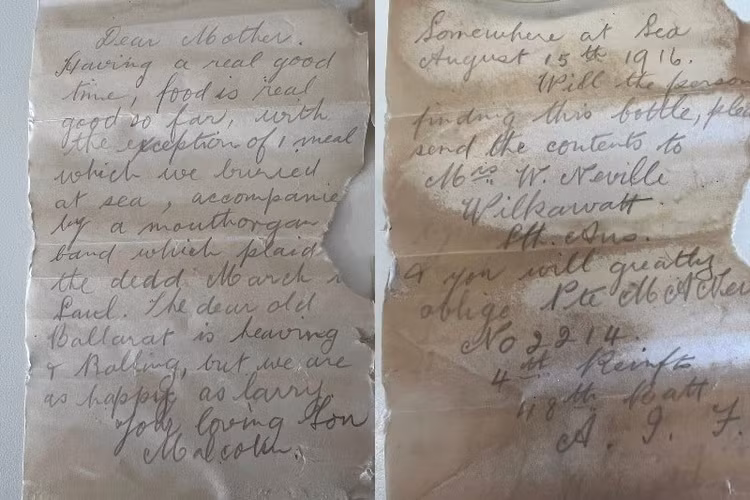 Dear Mother.
Having a real good
time, food is real
good so far, with
the exception of 1 meal
which we buried
at sea, accompanie
by a mouthorgan
band which plaid
the dedd March
Saul. The dear old
Ballarat is heaving
& Rolling, but we are
as happy as larry.
Your loving Son
Malcolm.
Somewhere at Sea
August 15th 1916.
Will the person
finding this bottle, plea
send the contents to
Mrs W. Neville
Wilkawatt.
Sth. Aus.
& you will greatly
oblige Pte M A Nev
No 2214.
4th Reinfts
48th Batt
A. I. F.